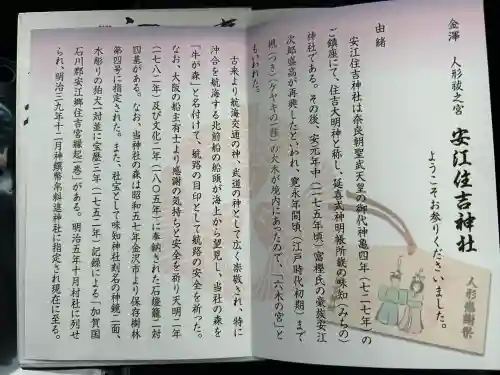 金澤 人形祓之宮 安江住吉神社
ようこそお参りくださいました。
由緒
安江住吉神社は奈良朝聖武天皇の御代神亀四年(七二七年)の
ご鎮座にて、住吉大明神と称し、延喜式神明帳所載の味知(みちの)
神社である。その後、安元年中(一一七五年頃)富樫氏の豪族安江
次郎盛高が再興したといわれ、寛永年間頃(江戸時代初期)まで
槻(つき)(ケヤキの一種)の大木が境内にあったので、「六木の宮」と
もいわれた。
古来より航海交通の神、武道の神として広く崇敬され、特に
沖合を航海する北前船の船頭が海上から望見し、当社の森を
「牛が森」と名付けて、航路の目印として航路の安全を祈った。
なお、大阪の船主有士より感謝の気持ちと安全を祈り天明二年
(一七八二年)及び文化二年(一八〇五年)に奉納された石燈籠二対
四基がある。なお、当神社の森は昭和五七年金沢市より保存樹林
第四号に指定された。また、社宝として味知神社刻名の神鏡二面、
木彫りの狛犬一対並に宝暦三年(一七五二年)記録による「加賀国
石川郡安江郷住吉宮縁起一巻」がある。明治五年十月村社に列せ
られ、明治三九年十二月神饌幣帛料進神社に指定され現在に至る。
人形感謝祭